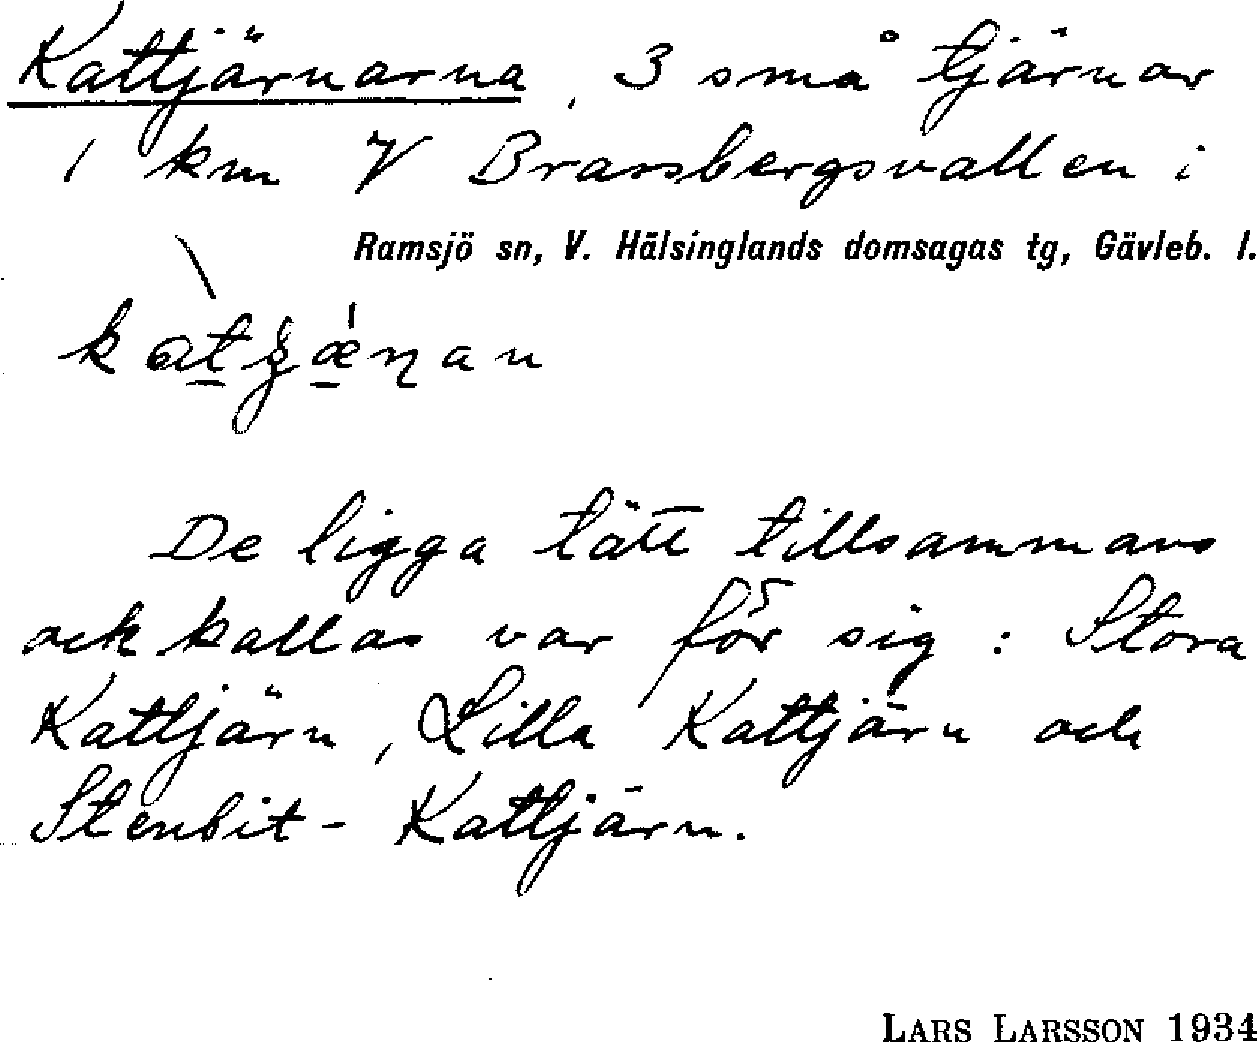 Kattjärnarna, 3 små tjärnar
1 km V Brassbergsvallen i
Ramsjö sn, V. Hälsinglands domsagas tg, Gävleb. l.
De ligga tätt tillsammans
och kallas var för sig: Stora
Kattjärn, Lilla Kattjärn och
Stenbit-Kattjärn.
LARS LARSSON 1934